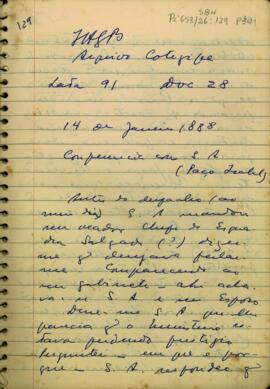 129
SBH
Pi 658/26:129
IHGB
Arquivo Cotegipe
Lata 91 Doc 28
14 de Janeiro 1888
Conferencia com S A
(Paço Isabel)
Antes do despacho (ao
meio dia) S. A. mandou
um creador, Chefe de Esqua
dra Salgado (?) dizer
me q desejava fallar-
me. Comparecendo ao
seu gabinete - ahi acha
va-se S A e seu Esposo
Disse-me S A que lhe
parecia q o ministerio es-
tava perdendo prestigio
Perguntei - em que e por
que - S. A. respondeo q